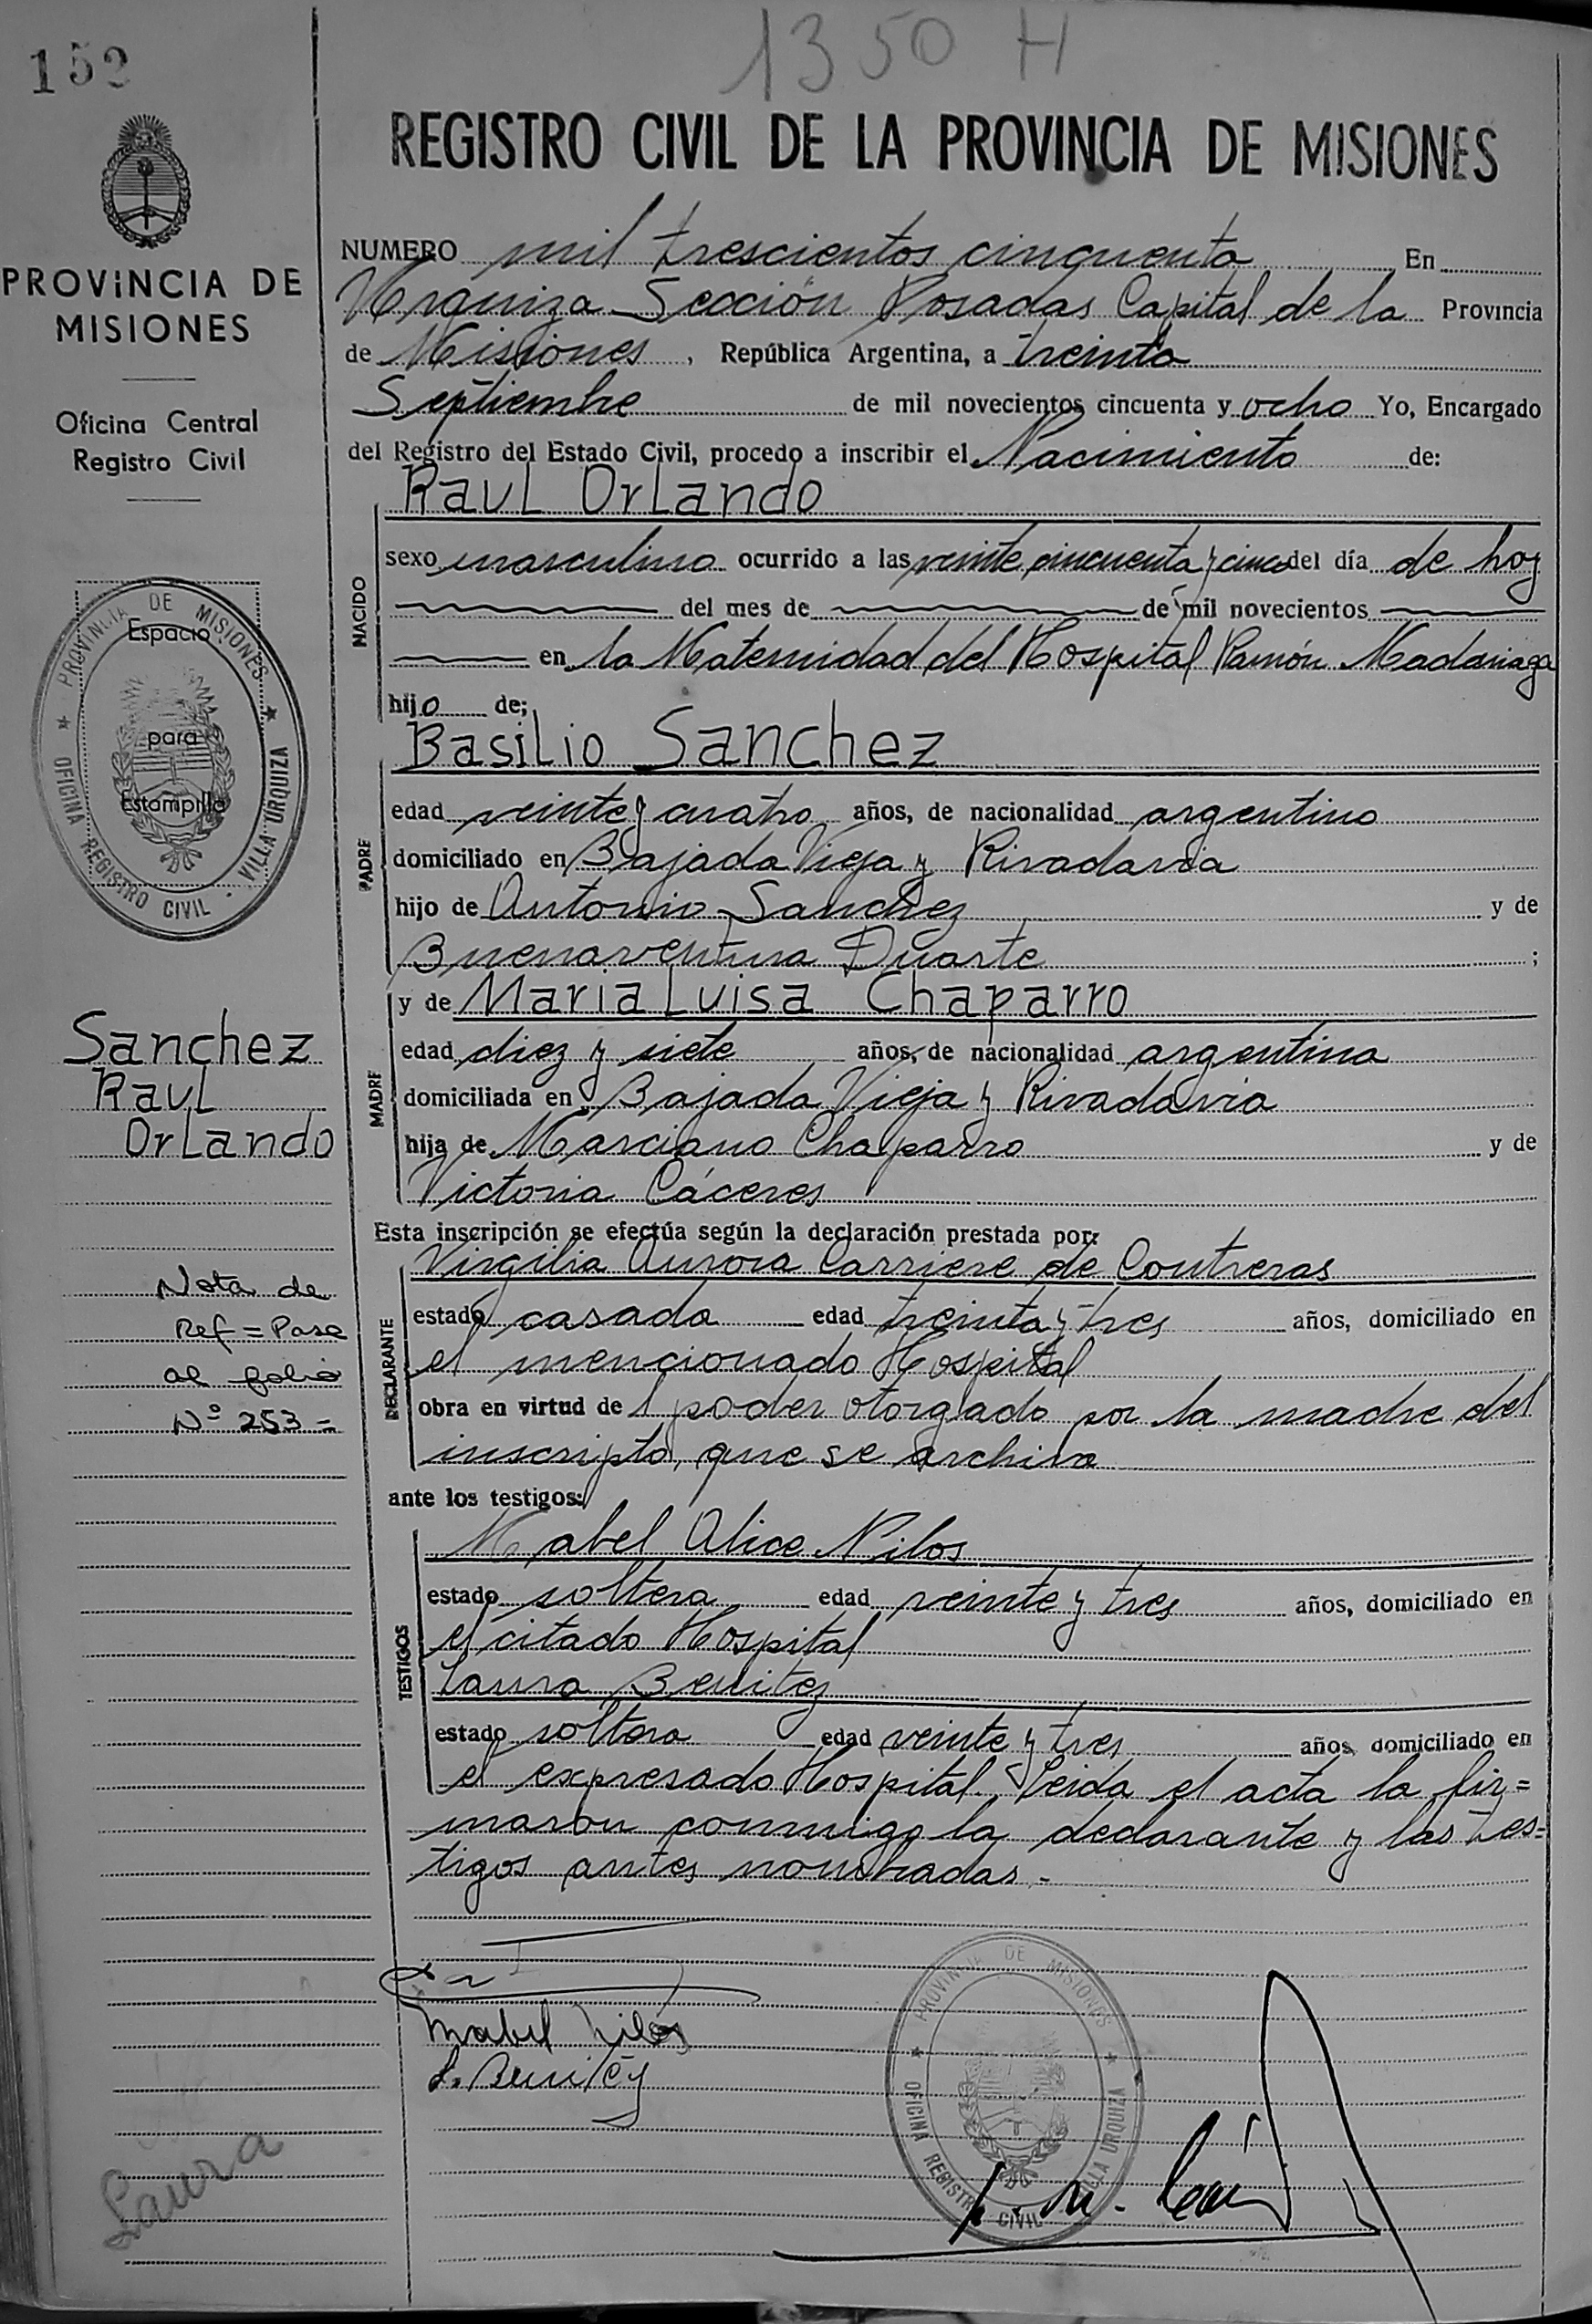 152
1350 H
REGISTRO CIVIL DE LA PROVINCIA DE MISIONES
PROVINCIA DE
MISIONES
Oficina Central
Registro Civil
NUMERO mil trescientos cincuenta En
Urquiza Sección Posadas Capital de la Provincia
de Misiones, República Argentina, a treinta
Septiembre de mil novecientos cincuenta y ocho Yo, Encargado
del Registro del Estado Civil, procedo a inscribir el Nacimiento de:
NACIDO
Raul Orlando
sexo masculino ocurrido a las veinte cincuenta y cinco del día de hoy
del mes de de mil novecientos
en la Maternidad del Hospital Ramón Madariaga
hijo de;
PADRE
Basilio Sanchez
edad veinte y cuatro años, de nacionalidad argentino
domiciliado en Bajada Vieja y Rivadavia
hijo de Antonio Sanchez y de
Buenaventura Duarte ;
MADRE
y de Maria Luisa Chaparro
edad diez y siete años, de nacionalidad argentina
domiciliada en Bajada Vieja y Rivadavia
hija de Marciano Chaparro y de
Victoria Cáceres
Esta inscripción se efectúa según la declaración prestada por:
DECLARANTE
Virgilia Aurora Carriere de Contreras
estado casada edad treinta y tres años, domiciliado en
el mencionado Hospital
obra en virtud de l poder otorgado por la madre del
inscripto, que se archiva
ante los testigos:
TESTIGOS
Mabel Alice Nilos
estado soltera edad veinte y tres años, domiciliado en
el citado Hospital
Laura Benitez
estado soltera edad veinte y tres años, domiciliado en
el expresado Hospital. Leida el acta la fir=
maron conmigo la declarante y las tes=
tigos antes nombradas.-
Mabel Nilos
L. Benitez
PROVINCIA DE MISIONES
OFICINA REGISTRO CIVIL - VILLA URQUIZA
Espacio
para
Estampilla
Sanchez
Raul
Orlando
Nota de
Ref = Pase
al folio
Nº 253 =
Laura
PROVINCIA DE MISIONES
OFICINA REGISTRO CIVIL VILLA URQUIZA